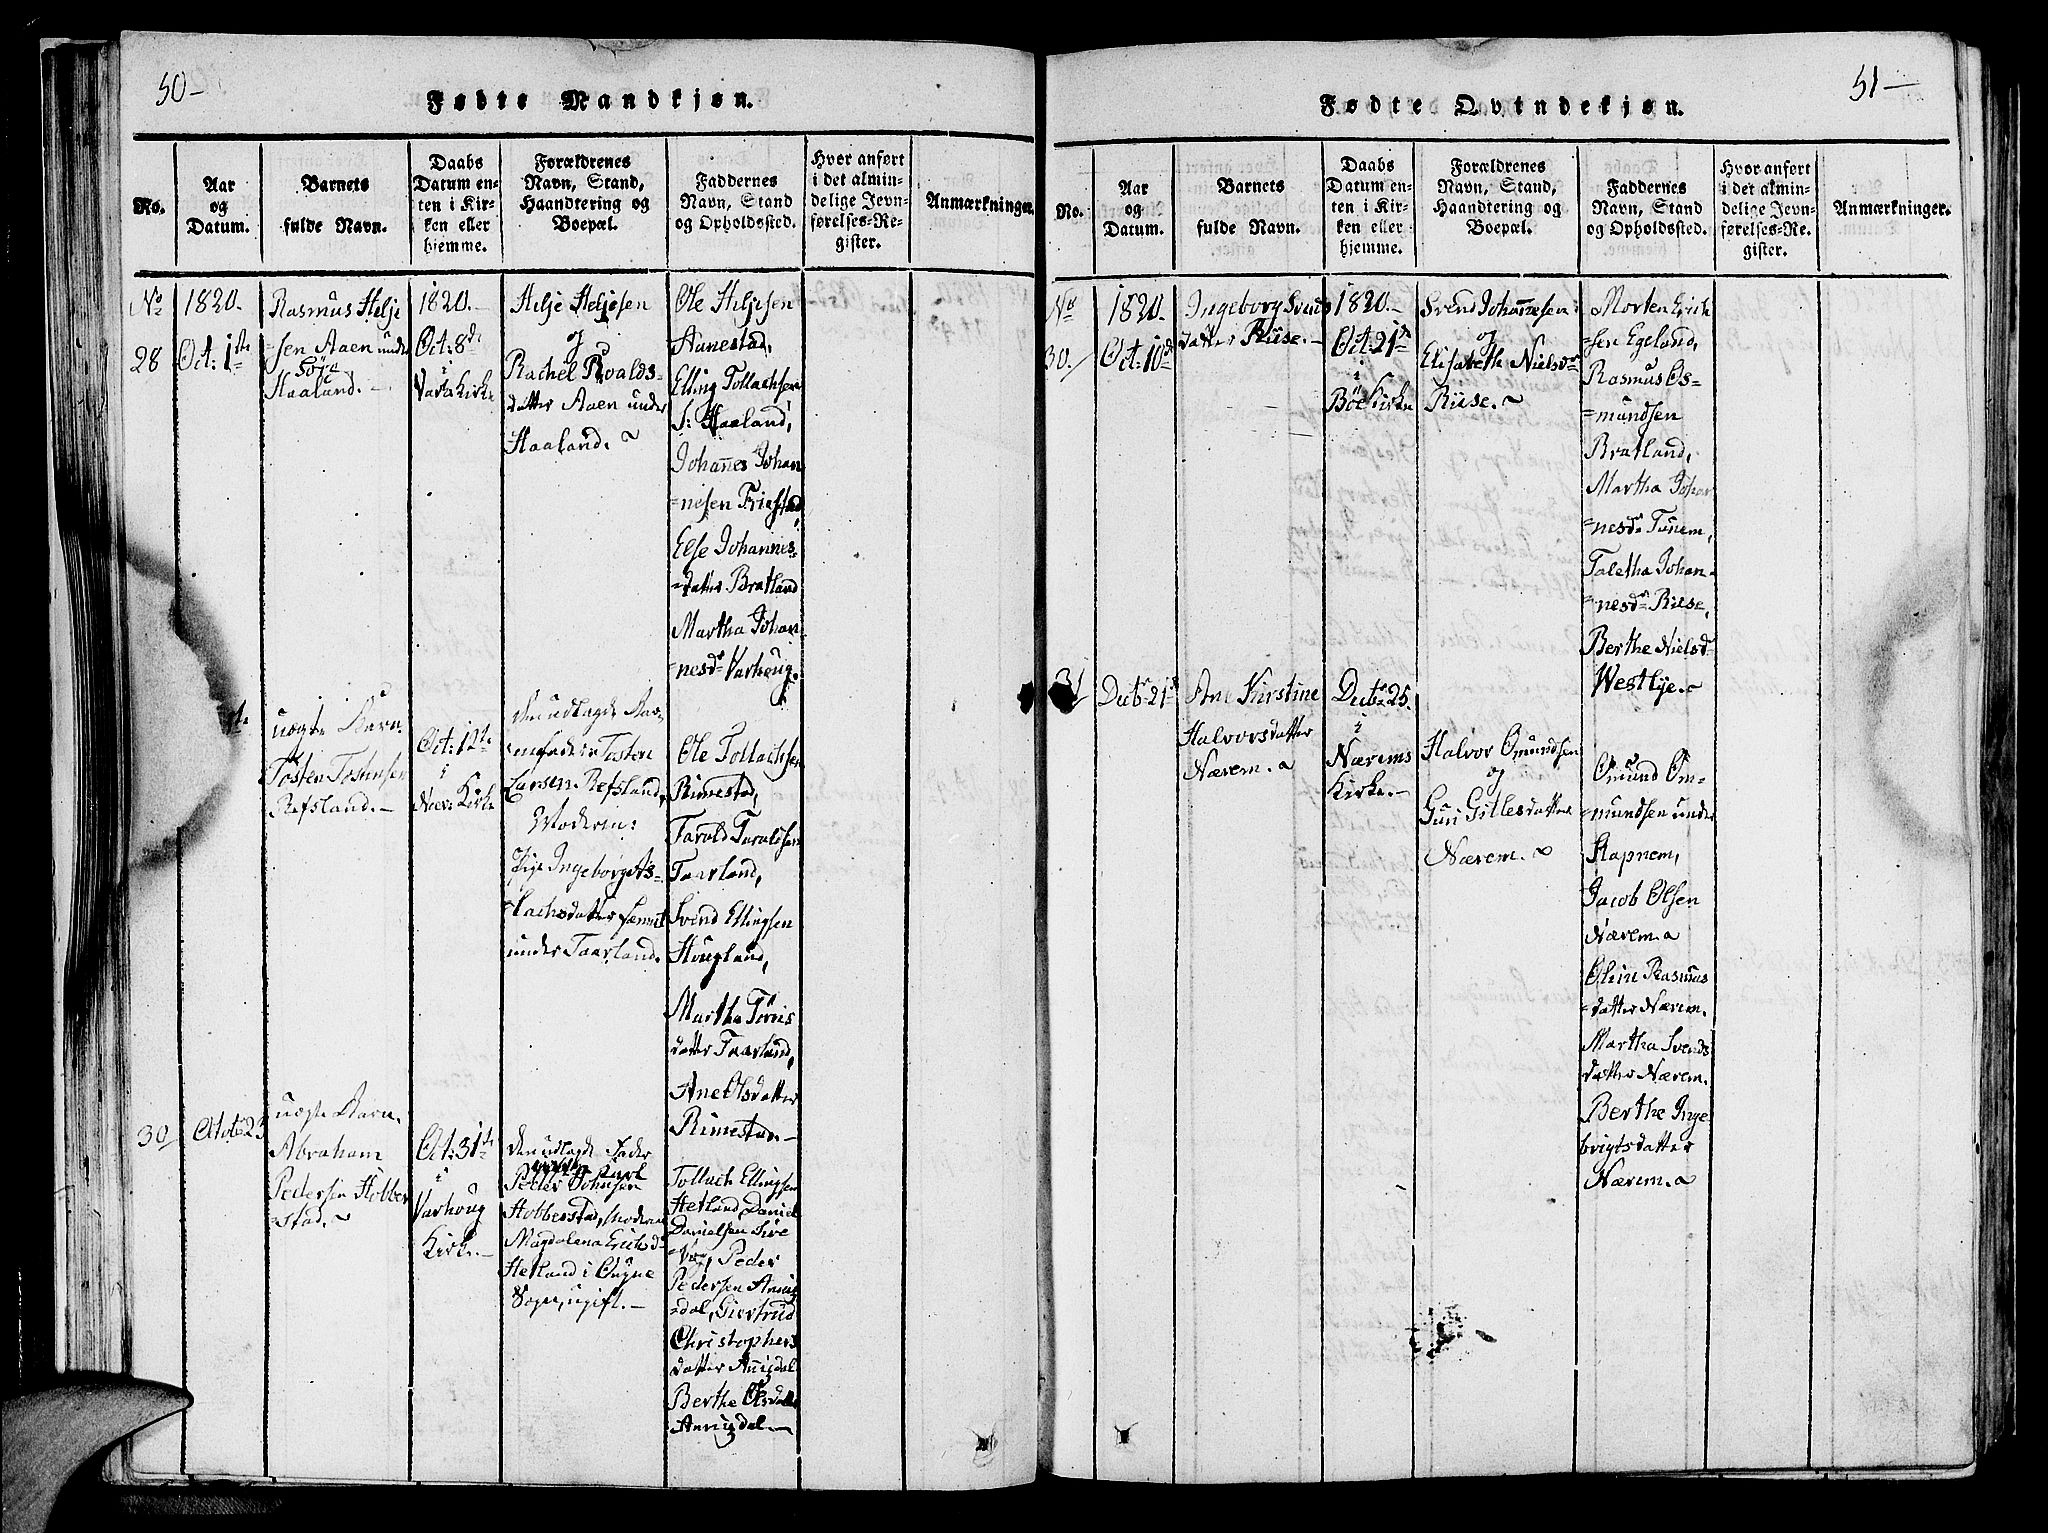 50-
Fødte Mandkjøn.
No.
Aar
og
Datum.
Barnets
fulde Navn.
Daabs
Datum en-
ten i Kir-
ken eller
hjemme.
Forældrenes
Navn, Stand,
Haandtering og
Boepæl.
Faddernes
Navn, Stand
og Opholdssted.
Hvor anført
i det almin-
delige Jevn-
førelses-Re-
gister.
Anmærkninger.
No
28
1820.
Oct: 1ste
Rasmus Helje
=sen Aaen under
Haaland.-
1820.-
Oct: 8de
i
Kirke
Helje Heljesen
og
Rachel Roalds-
datter Aaen under
Haaland.
Ole Heljesen
Aanestad,
Elling Tollachsen
S: Haaland,
Johannes Johan
=nesen Friestad,
Else Johannes-
=datter Bratland
Martha Johan
=nesdr Varhoug.
uægte Barn.
Tosten Tostensen
Refsland.-
Oct: 12te
i
Nær: Kirke
den udlagde Bar-
nefader Tosten
Larsen Refsland,
Moderen:
Pige Ingeborg As-
=lachsdatter
under Taarland.
Ole Tollachsen
Rimestad,
Tarald Taraldsen
Taarland,
Svend Ellingsen
Hougland,
Martha Tøres
datter Taarland,
Ane Olsdatter
Rimestad.-
30
Octobr 23
uægte Barn.
Abraham
Pedersen Hobber
=stad.
Oct: 31te
i
Varhoug
Kirke.-
den udlagde Fader
Peder Johnsen
Hobberstad, Moderen
Magdalena Erichsdr
Hetland i Ougne
Sogn, ugift.-
Tollach Ellingsen
Hetland, Daniel
Danielsen Sire
=vog, Peder
Pedersen Aniig
=dal, Giertrud
Christophers
datter Aniigdal
Berthe Olsdatter
Aniigdal.-
51-
Fødte Qvindekjøn.
No.
Aar
og
Datum.
Barnets
fulde Navn.
Daabs
Datum en-
ten i Kir-
ken eller
hjemme.
Forældrenes
Navn, Stand,
Haandtering og
Boepæl.
Faddernes
Navn, Stand
og Opholdssted.
Hvor anført
i det almin-
delige Jevn-
førelses-Re-
gister.
Anmærkninger.
No
30.
1820.
Oct: 10de
Ingeborg Svends
datter Riise.-
1820.-
Oct: 21de
i
Bøe Kirke
Svend Johannesen
og
Elisabeth Nielsdr
Riise.
Morten Erich
=sen Egeland,
Rasmus Os-
=mundsen
Bratland,
Martha Johan
=nesdr Tunem,
Taletha Johan-
=nesdr Riise,
Berthe Nielsdr
Westlye.
31
Decbr 21de
Ane Kirstine
Halvorsdatter
Nærem.
Decbr 25.
i
Nærems
Kirke.-
Halvor Omundsen
og
Guri Gitlesdatter
Nærem.
Omund Om-
=mundsen under
Rapnem,
Jacob Olsen
Nærem.
Oline Rasmus
=datter Nærem.
Martha Svends
datter Nærem.
Berthe Inge
brigtsdatter
Nærem.